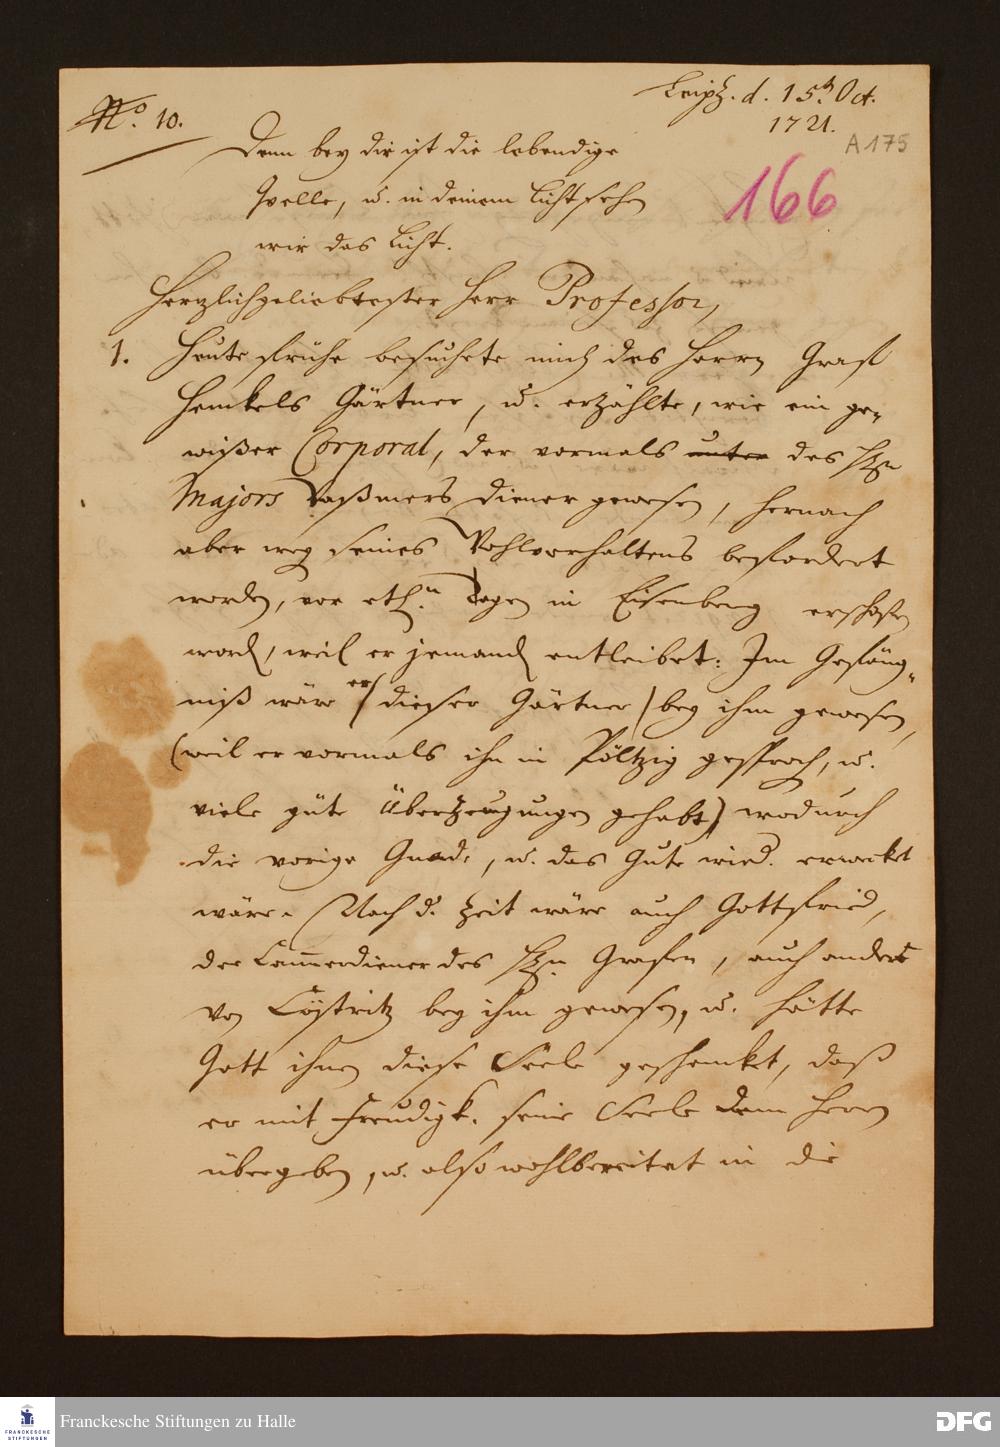 Leipz. d. 15t. Oct.
1721.
No. 10.
A 175
166
Denn bey dir ist die lebendige
Qvelle, u. in deinem Licht sehen
wir das Licht.
Hertzlichgeliebtester Herr Professor,
1. Heute frühe besuchete mich des Herrn Graf
Henckels Gärtner, u. erzählte, wie ein ge-
wißer Corporal, der vormals unter des HErn
Majors diener gewesen, hernach
aber weg. seines Wohlverhaltens befordert
worden, vor etl. Tagen in Eisenberg erschoßen
word, weil er jemand entleibet: Im Gefäng-
niß wäre er (dieser Gärtner) bey ihm gewesen,
(weil er vormals ihn in Pöltzig gesproch, u.
viele gute Überzeugungen gehabt) wodurch
die vorige Gnade, u. das Gute wied. erwecket
wäre. Nach d. Zeit wäre auch Gottfried,
der Cammerdiener des HErn Grafen, auch andere
von Cöstritz bey ihm gewesen, u. hätte
Gott ihnen diese Seele geschenckt, daß
er mit Freudigk. seine Seele dem Herrn
übergeben, u. also wohlbereitet in die
Franckesche Stiftungen zu Halle
FRANCKESCHE
STIFTUNGEN
DFG